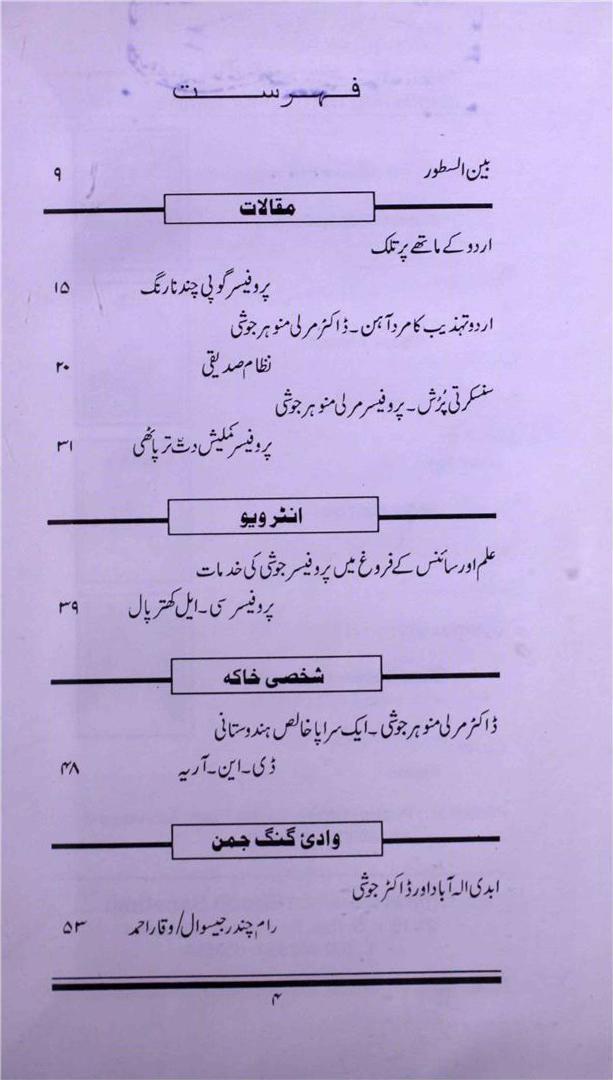 فہرست
بین السطور ۹
مقالات
اردو کے ماتھے پر تلک
پروفیسر گوپی چند نارنگ ۱۵
اردو تہذیب کا مرد آہن۔ ڈاکٹر مرلی منوہر جوشی
نظام صدیقی ۲۰
سنسکرتی پُرش۔ پروفیسر مرلی منوہر جوشی
پروفیسر کملیش دتّ ترپاٹھی ۳۱
انٹرویو
علم اور سائنس کے فروغ میں پروفیسر جوشی کی خدمات
پروفیسر سی۔ ایل کھترپال ۳۹
شخصی خاکہ
ڈاکٹر مرلی منوہر جوشی۔ ایک سراپا خالص ہندوستانی
ڈی۔ این۔ آریہ ۴۸
وادیٔ گنگ جمن
ابدی الہ آباد اور ڈاکٹر جوشی
رام چندر جیسوال/ وقار احمد ۵۳
۴